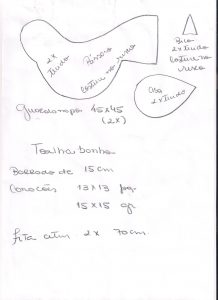 2x
tecido
Pássaro
costura no avesso
Bico
2x tecido
costura no
avesso
Asa
2x tecido
Guardanapo 45x45
(2x)
Toalha banho
Barrado de 15cm
Corações 13x13 pq.
15x15 gr
fita cetim 2x 70cm